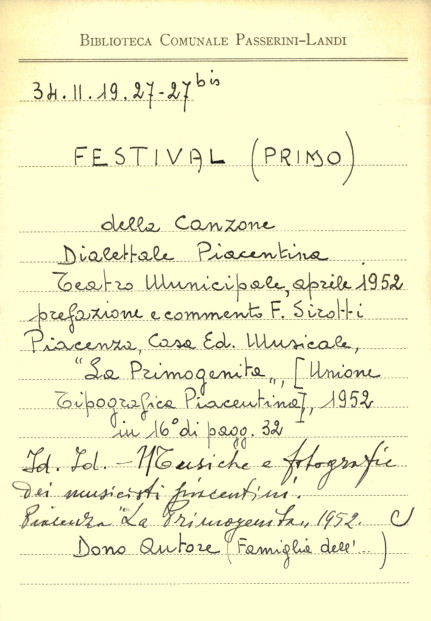 BIBLIOTECA COMUNALE PASSERINI-LANDI
34.II.19.27-27 bis
FESTIVAL (PRIMO)
della Canzone
Dialettale Piacentina
Teatro Municipale, aprile 1952
prefazione e commento F. Sirotti
Piacenza, Casa Ed. Musicale,
"La Primogenita", [Unione
Tipografica Piacentina], 1952
in 16° di pagg. 32
Id. Id. - Musiche e fotografie
dei musicisti piacentini.
Piacenza "La Primogenita" 1952.
Dono Autore (Famiglia dell'...)